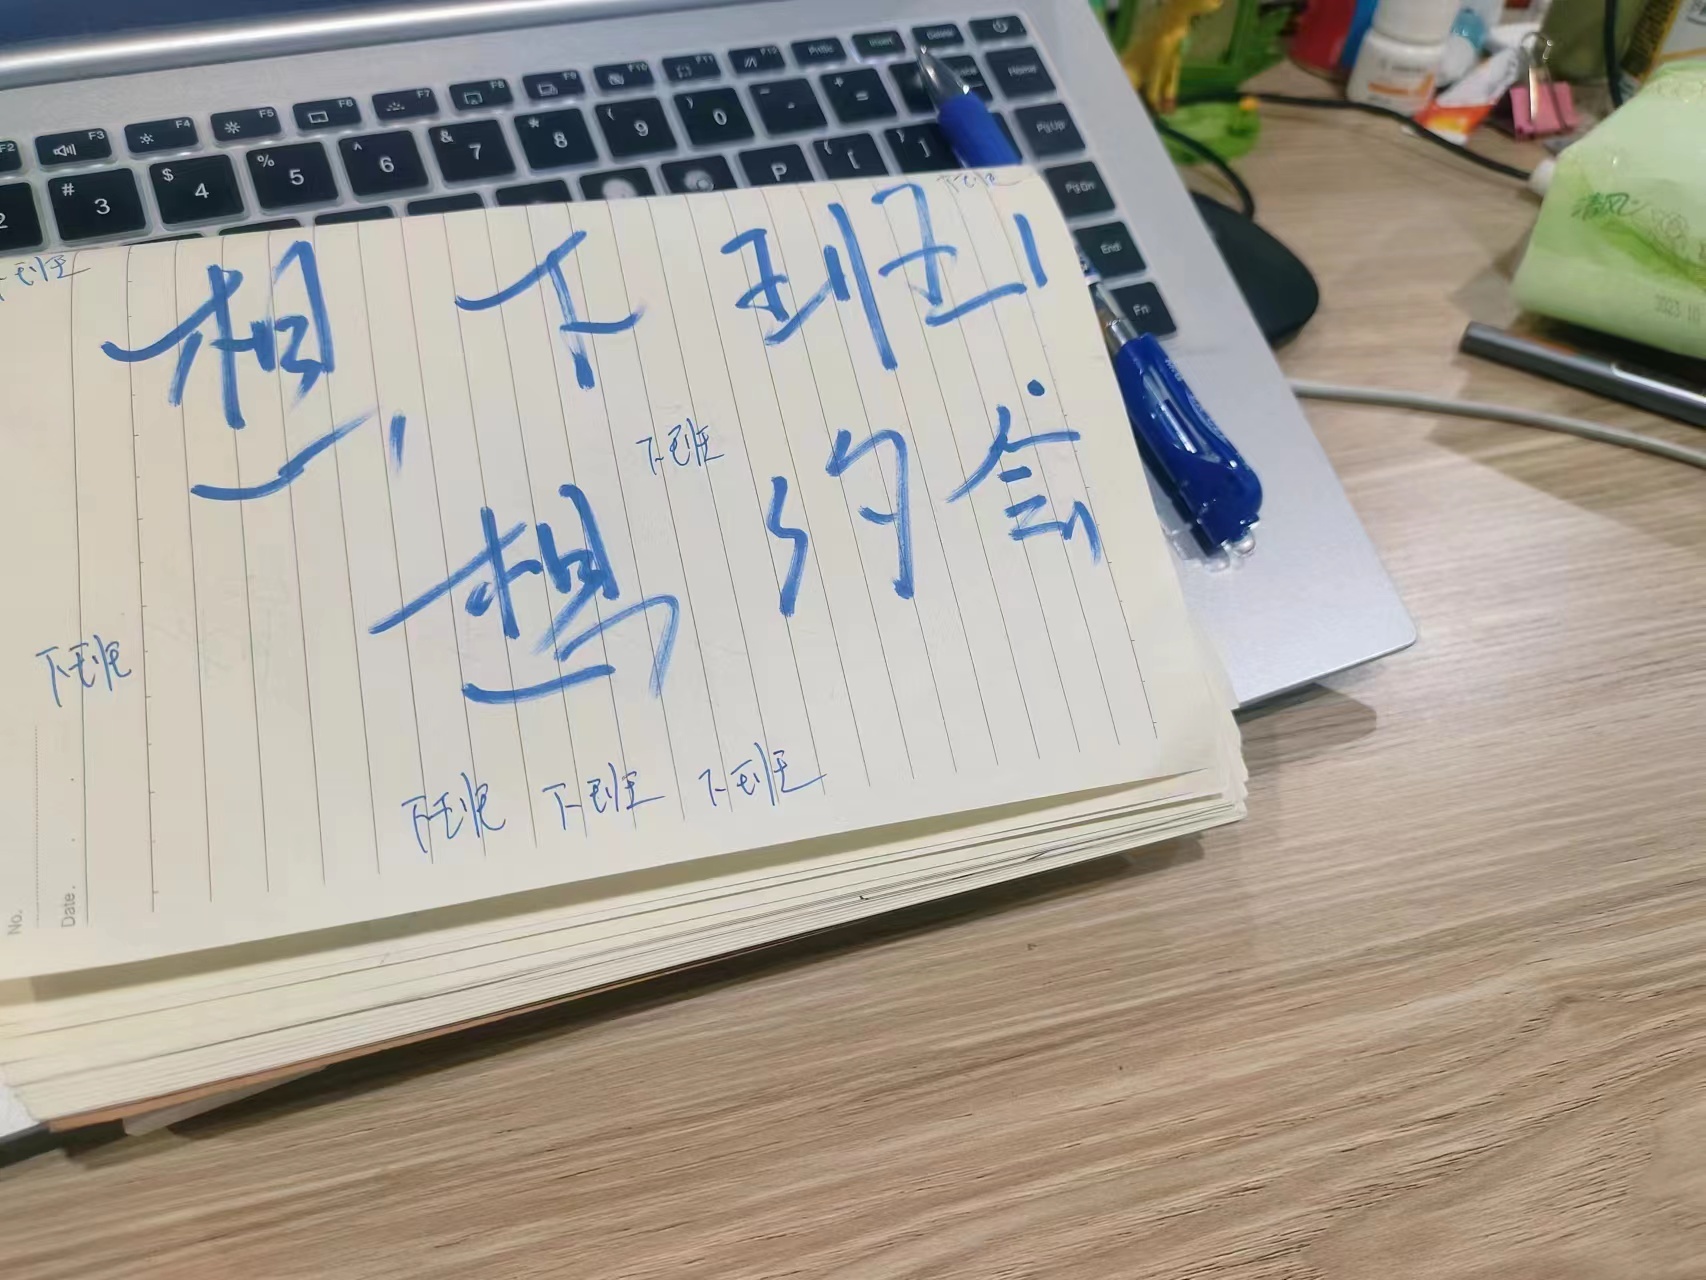 F2 F3 F4 F5 F6 F7 F8 F9 F10 F11 F12 PrtSc Insert Delete
2 # 3 $ 4 % 5 ^ 6 & 7 * 8 ( 9 ) 0 - = + Home
P { [ } ] PgUp
PgDn
End
Fn
下班
下班
想下班!
下班
想约会
下班
下班 下班 下班
No.
Date.
清风